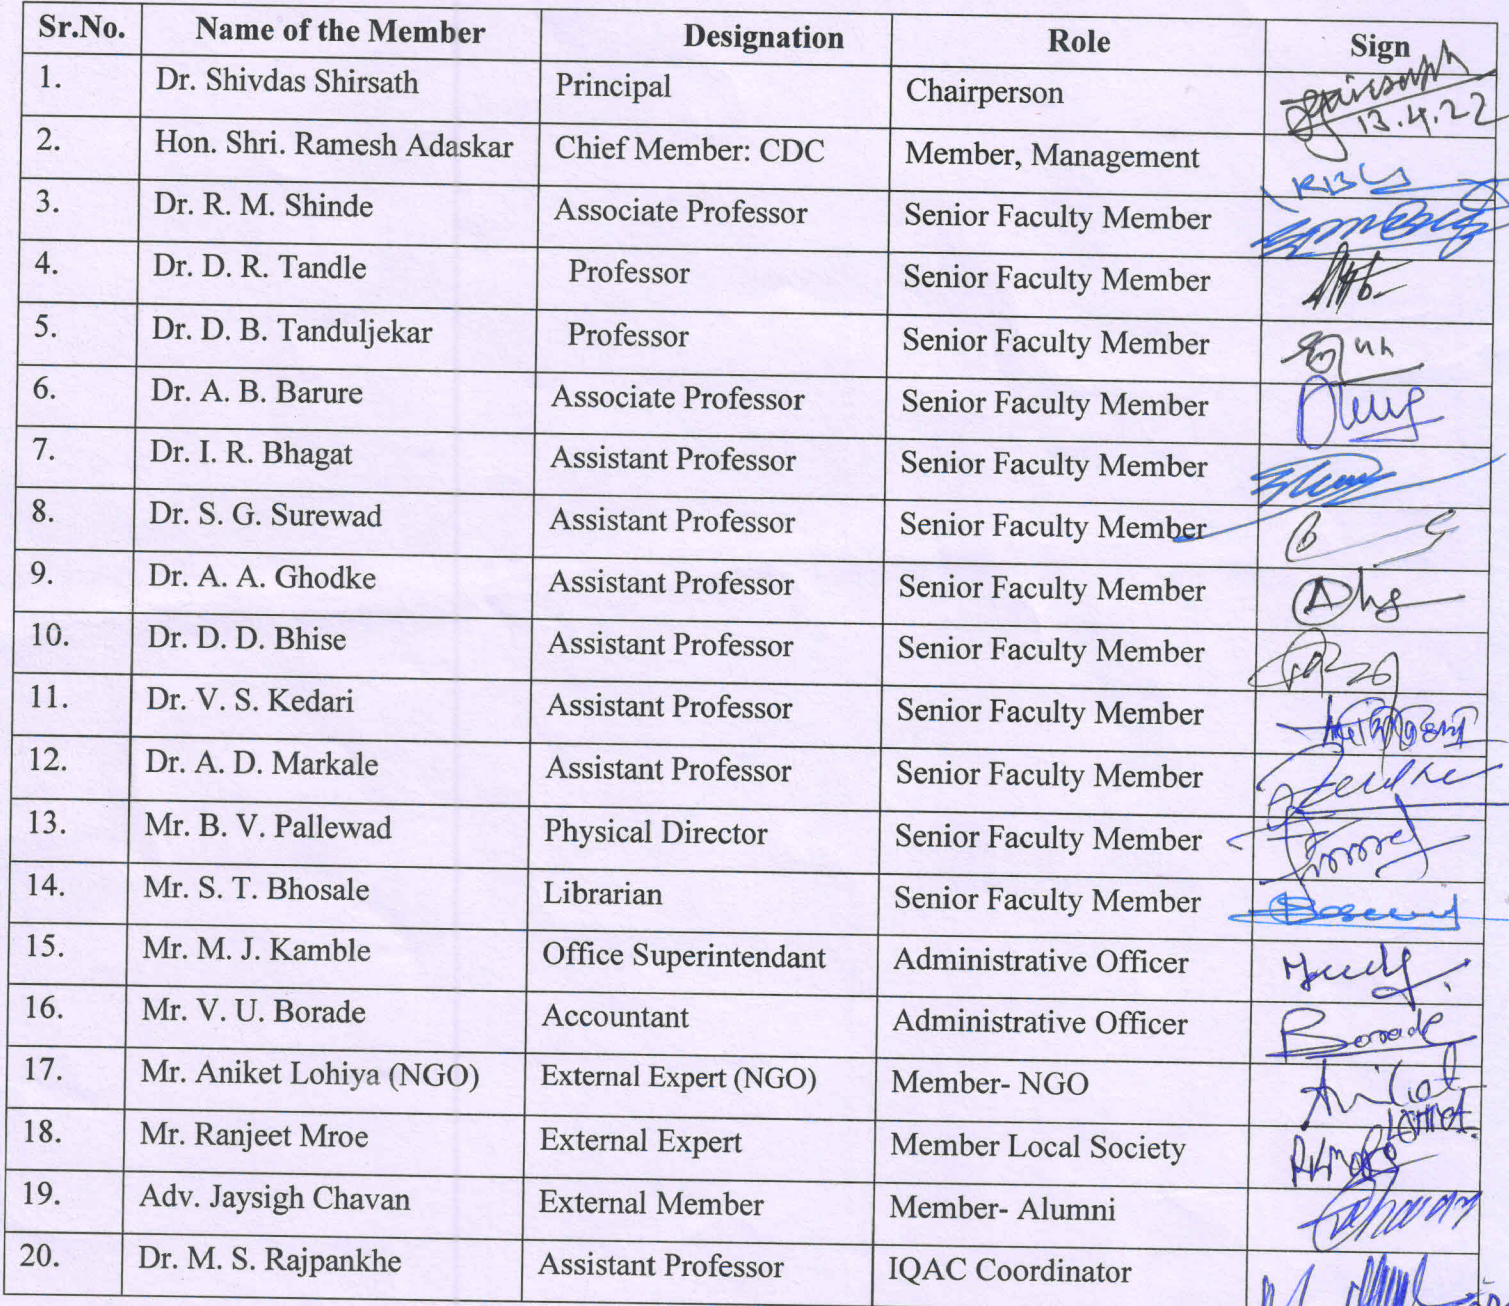 Sr.No. Name of the Member Designation Role Sign
1. Dr. Shivdas Shirsath Principal Chairperson
13.4.22
2. Hon. Shri. Ramesh Adaskar Chief Member: CDC Member, Management
3. Dr. R. M. Shinde Associate Professor Senior Faculty Member
4. Dr. D. R. Tandle Professor Senior Faculty Member
5. Dr. D. B. Tanduljekar Professor Senior Faculty Member
6. Dr. A. B. Barure Associate Professor Senior Faculty Member
7. Dr. I. R. Bhagat Assistant Professor Senior Faculty Member
8. Dr. S. G. Surewad Assistant Professor Senior Faculty Member
9. Dr. A. A. Ghodke Assistant Professor Senior Faculty Member
10. Dr. D. D. Bhise Assistant Professor Senior Faculty Member
11. Dr. V. S. Kedari Assistant Professor Senior Faculty Member
12. Dr. A. D. Markale Assistant Professor Senior Faculty Member
13. Mr. B. V. Pallewad Physical Director Senior Faculty Member
14. Mr. S. T. Bhosale Librarian Senior Faculty Member
15. Mr. M. J. Kamble Office Superintendant Administrative Officer
16. Mr. V. U. Borade Accountant Administrative Officer Borade
17. Mr. Aniket Lohiya (NGO) External Expert (NGO) Member- NGO
18. Mr. Ranjeet Mroe External Expert Member Local Society
19. Adv. Jaysigh Chavan External Member Member- Alumni
20. Dr. M. S. Rajpankhe Assistant Professor IQAC Coordinator